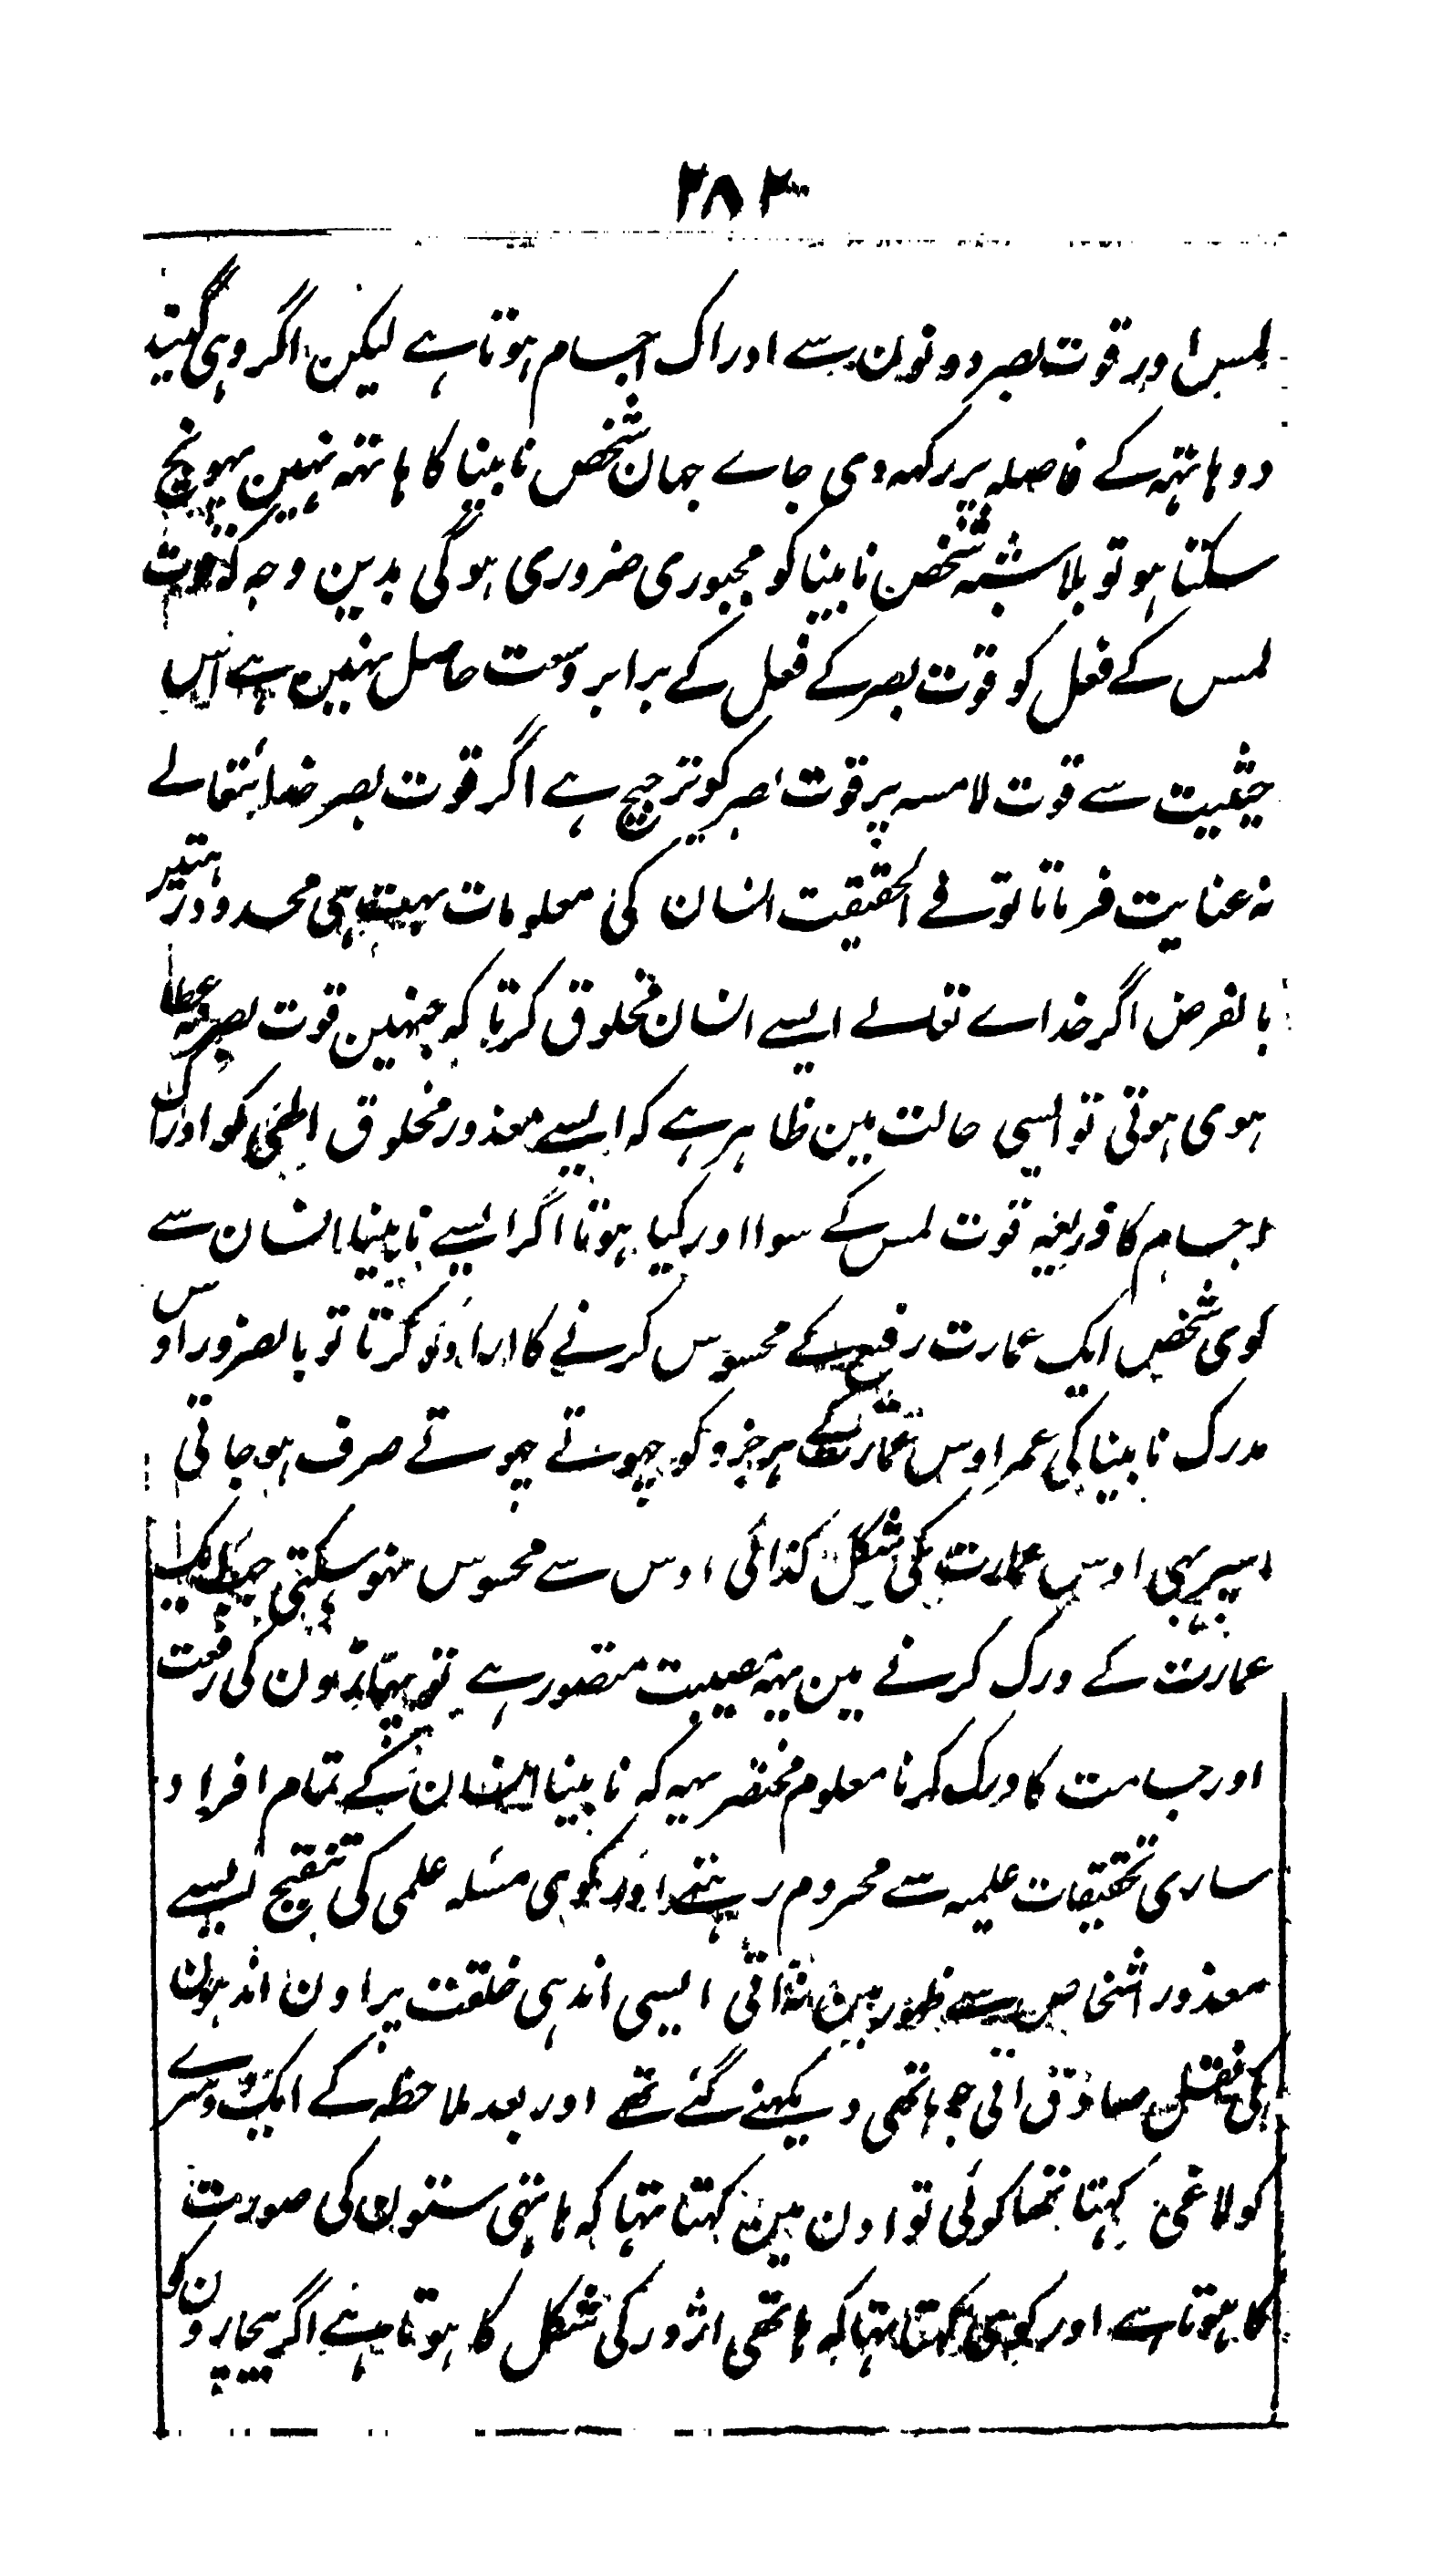 ۲۸۳
لمس اور قوت بصر دونون سے ادراک اجسام ہوتا ہے لیکن اگر وہی گیند
دو ہاتہہ کے فاصلہ پر رکہہ دی جاے جہان شخص نابینا کا ہاتہہ نہین پہونچ
سکتا ہو تو بلا شبہہ شخص نابینا کو مجبوری ضروری ہوگی بدین وجہ کہ قوت
لمس کے فعل کو قوت بصر کے فعل کے برابر وسعت حاصل نہین ہے اس
حیثیت سے قوت لامسہ پر قوت بصر کو ترجیح ہے اگر قوت بصر خداے تعالے
نہ عنایت فرماتا تو فے الحقیقت انسان کی معلومات بہت ہی محدود رہتیں
بالفرض اگر خداے تعالے ایسے انسان مخلوق کرتا کہ جنہین قوت بصر نہ عطا
ہوی ہوتی تو ایسی حالت مین ظاہر ہے کہ ایسے معذور مخلوق اعمیٰ کو ادراک
اجسام کا ذریعہ قوت لمس کے سوا اور کیا ہوتا اگر ایسے نابینا انسان سے
کوی شخص ایک عمارت رفیع کے محسوس کرنے کا ارادہ کرتا تو بالضرور اوس
مدرک نابینا کی عمر اوس عمارت کے ہر جزو کو چہوتے چہوتے صرف ہو جاتی
اسپر بہی اوس عمارت کی شکل کذائی اوس سے محسوس نہو سکتی جب ایک
عمارت کے درک کرنے مین یہہ مصیبت متصور ہے تو پہاڑون کی رفعت
اور جسامت کا درک کرنا معلوم مختصر یہہ کہ نابینا انسان کے تمام افراد
ساری تحقیقات علمیہ سے محروم رہتے اور کوی مسئلہ علمی کی تنقیح ایسے
معذور اشخاص سے ظہور مین نہ آتی ایسی اندہی خلقت پر اون اندہون
کی نقل صادق آتی جو ہاتھی دیکہنے گئے تھے اور بعد ملاحظہ کے ایک دوسرے
کو لاغی کہتا تھا کوئی تو اون مین کہتا تہا کہ ہاتہی ستون کی صورت
کا ہوتا ہے اور کوی کہتا تہا کہ ہاتھی اژدر کی شکل کا ہوتا ہے اگر بیچارون کو